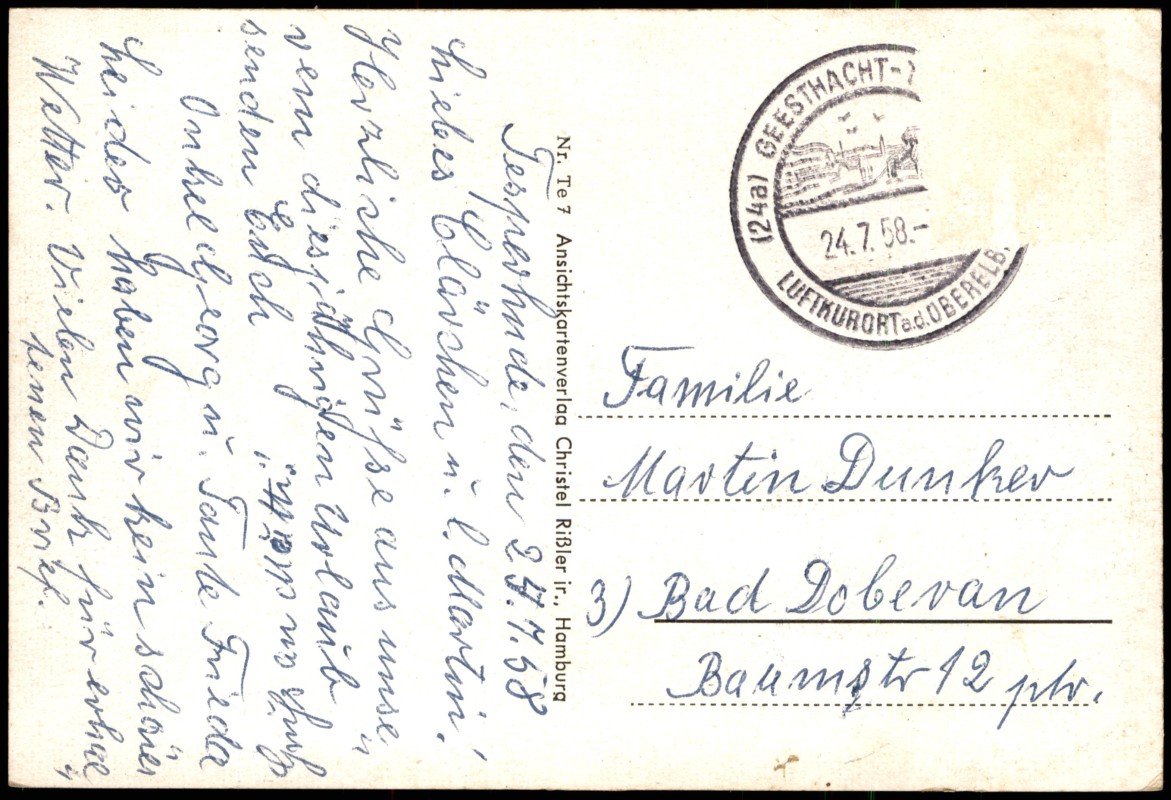 Tesperhude, den 24.7.58
Liebes Clärchen u. l. Martin!
Herzliche Grüße aus unse=
rem diesjährigen Urlaub
senden Euch
Onkel Georg u. Tante Frieda
Leider haben wir kein schönes
Wetter. Vielen Dank für erhal=
tenen Brief.
Nr. Te 7 Ansichtskartenverlag Christel Rißler jr., Hamburg
(24a) GEESTHACHT-
24.7.58.-
LUFTKURORT a.d. OBERELB
Familie
Martin Dunker
3) Bad Doberan
Baumstr 12 ptr.